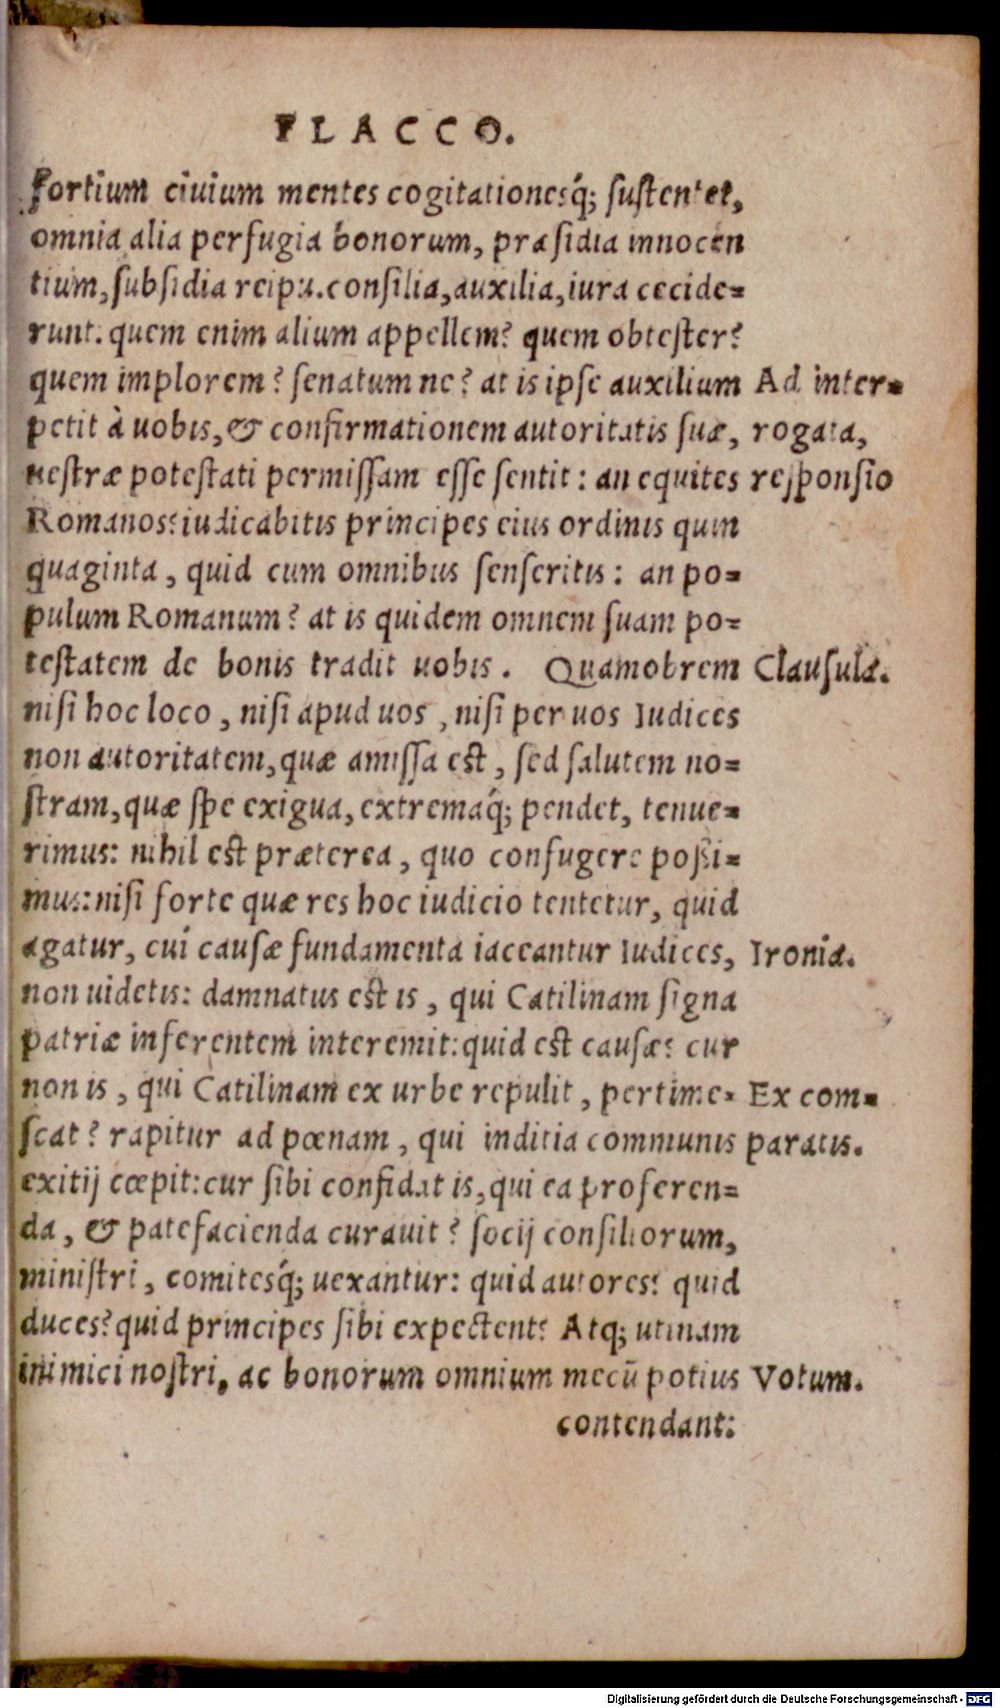 FLACCO.
fortium ciuium mentes cogitationesq́; sustentet,
omnia alia perfugia bonorum, præsidia innocen
tium, subsidia reipu. consilia, auxilia, iura cecide=
runt. quem enim alium appellem? quem obtester?
quem implorem? senatum ne? at is ipse auxilium
petit à uobis, & confirmationem autoritatis suæ,
uestræ potestati permissam esse sentit: an equites
Romanos? iudicabitis principes eius ordinis quin
quaginta, quid cum omnibus senseritis: an po=
pulum Romanum? at is quidem omnem suam po=
testatem de bonis tradit uobis. Quamobrem
nisi hoc loco, nisi apud uos, nisi per uos Iudices
non autoritatem, quæ amissa est, sed salutem no=
stram, quæ spe exigua, extremaq́; pendet, tenue=
rimus: nihil est præterea, quo confugere poßi=
mus: nisi forte quæ res hoc iudicio tentetur, quid
agatur, cui causæ fundamenta iaceantur Iudices,
non uidetis: damnatus est is, qui Catilinam signa
patriæ inferentem interemit: quid est causæ? cur
non is, qui Catilinam ex urbe repulit, pertime=
scat? rapitur ad pœnam, qui inditia communis
exitij cœpit: cur sibi confidat is, qui ea proferen=
da, & patefacienda curauit? socij consiliorum,
ministri, comitesq́; uexantur: quid autores? quid
duces? quid principes sibi expectent? Atq; utinam
inimici nostri, ac bonorum omnium mecū potius
contendant:
Ad inter=
rogata,
responsio
Clausula.
Ironia.
Ex com=
paratis.
Votum.
Digitalisierung gefördert durch die Deutsche Forschungsgemeinschaft - DFG